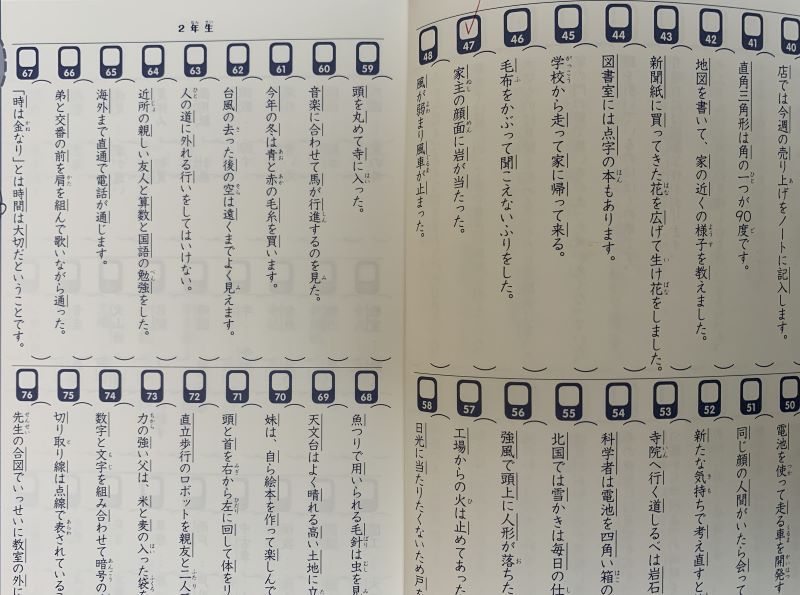 40
店では今週の売り上げをノートに記入します。
41
直角三角形は角の一つが90度です。
42
地図を書いて、家の近くの様子を教えました。
43
新聞紙に買ってきた花を広げて生け花をしました。
44
図書室には点字の本もあります。
45
学校から走って家に帰って来る。
46
毛布をかぶって聞こえないふりをした。
47
家主の顔面に岩が当たった。
48
風が弱まり風車が止まった。
50
電池を使って走る車を開発す
51
同じ顔の人間がいたら会って
52
新たな気持ちで考え直すと
53
寺院へ行く道しるべは岩石
54
科学者は電池を四角い箱の
55
北国では雪かきは毎日の仕
56
強風で頭上に人形が落ちた
57
工場からの火は止めてあった
58
日光に当たりたくないため戸を
2年生
59
頭を丸めて寺に入った。
60
音楽に合わせて馬が行進するのを見た。
61
今年の冬は青と赤の毛糸を買います。
62
台風の去った後の空は遠くまでよく見えます。
63
人の道に外れる行いをしてはいけない。
64
近所の親しい友人と算数と国語の勉強をした。
65
海外まで直通で電話が通じます。
66
弟と交番の前を肩を組んで歌いながら通った。
67
「時は金なり」とは時間は大切だということです。
68
魚つりで用いられる毛針は虫を見
69
天文台はよく晴れる高い土地に立
70
妹は、自ら絵本を作って楽しんで
71
頭と首を右から左に回して体をリ
72
直立歩行のロボットを親友と二人で
73
力の強い父は、米と麦の入った袋を
74
数字と文字を組み合わせて暗号の
75
切り取り線は点線で表されている
76
先生の合図でいっせいに教室の外に